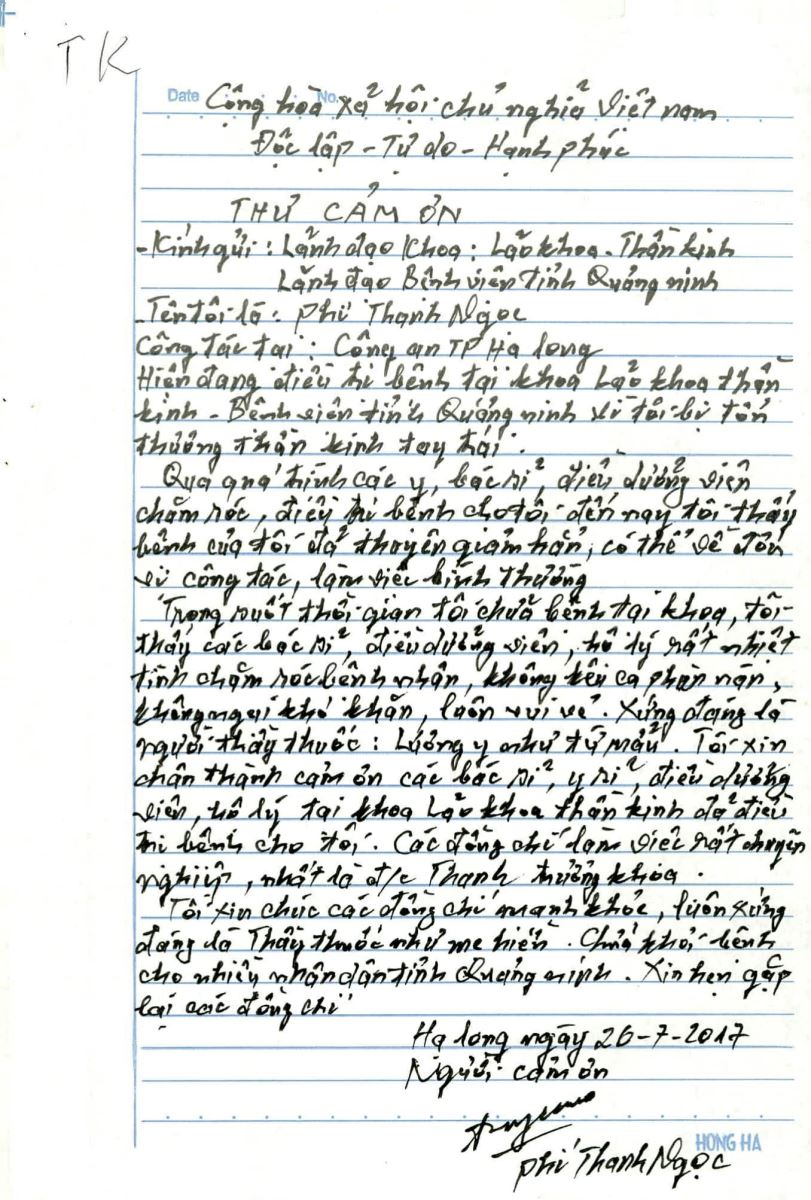 TK
Date No.
Cộng hoà xã hội chủ nghĩa Việt nam
Độc lập - Tự do - Hạnh phúc
THƯ CẢM ƠN
- Kính gửi : Lãnh đạo Khoa : Lão khoa - Thần kinh
Lãnh đạo Bệnh viện tỉnh Quảng ninh
- Tên tôi là : Phí Thanh Ngọc
Công tác tại : Công an TP Hạ long
Hiện đang điều trị bệnh tại khoa Lão khoa thần
kinh - Bệnh viện tỉnh Quảng ninh vì tôi bị tổn
thương thần kinh tay trái.
Qua quá trình các y, bác sĩ, điều dưỡng viên
chăm sóc, điều trị bệnh cho tôi đến nay tôi thấy
bệnh của tôi đã thuyên giảm hẳn, có thể về đơn
vị công tác, làm việc bình thường
Trong suốt thời gian tôi chữa bệnh tại khoa, tôi
thấy các bác sĩ, điều dưỡng viên, hộ lý rất nhiệt
tình chăm sóc bệnh nhân, không kêu ca phàn nàn,
không ngại khó khăn, luôn vui vẻ. Xứng đáng là
người thầy thuốc : Lương y như từ mẫu. Tôi xin
chân thành cảm ơn các bác sĩ, y sĩ, điều dưỡng
viên, hộ lý tại khoa Lão khoa thần kinh đã điều
trị bệnh cho tôi. Các đồng chí làm việc rất chuyên
nghiệp, nhất là đ/c Thanh trưởng khoa.
Tôi xin chúc các đồng chí mạnh khỏe, luôn xứng
đáng là Thầy thuốc như mẹ hiền. Chữa khỏi bệnh
cho nhiều nhân dân tỉnh Quảng ninh. Xin hẹn gặp
lại các đồng chí
Hạ long ngày 26-7-2017
Người cảm ơn
Phí Thanh Ngọc
HONG HA